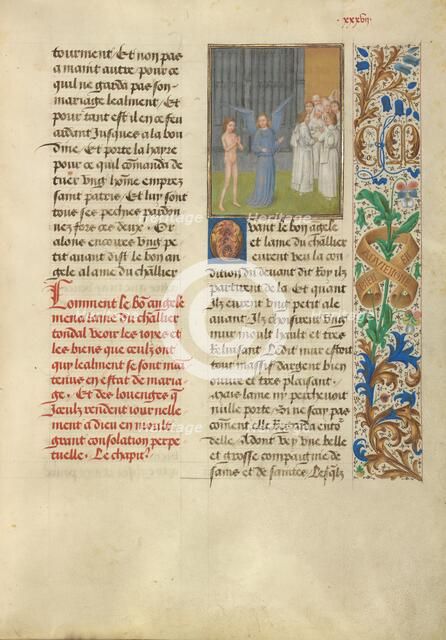 xxxvii
tourment / Et non pas
a maint autre / pour ce
quil ne garda pas son
mariage lealment / Et
pour tant est il en ce feu
ardant Jusques a la bou
dine / Et porte la haire
pour ce quil commanda de
tuer vng homme emprez
saint patrice / Et luy sont
tous ses pechies pardon
nez fors ces deux / Or
alons encores vng pe
tit auant dist le bon an
gele a lame du chlr̄
Comment le bon angele
mena lame du chlr̄
tondal veoir les ioyes et
les biens que ceulz ont
qui lealment se sont ma
tenus en estat de maria
ge / Et des louenges q̄
Iceulz rendent iournelle
ment a dieu en moult
grant consolation perpe
tuelle / Le chapitre
Quant le bon angele
et lame du chlr̄
eurent veu la con
dition du deuant dit Roy Ilz
partirent de la / Et quant
Ilz eurent vng petit ale
auant / Ilz choisirent vng
mur moult hault et tres
reluisant / Ledit mur estoit
tout massiz dargent bien
ouure et tres plaisant /
Mais lame ny percheuoit
nulle porte / Si ne scay pas
comment elle Regarda ento
delle / Adont vey vne belle
et grosse compaignie de
sains et de saintes / Lesq̄lz
Heritage